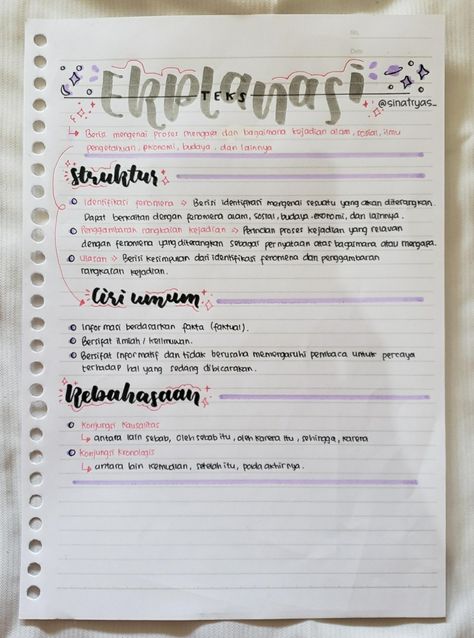 No.
Date
TEKS
Ekplanasi
@sinatryas_
↳ Berisi mengenai proses mengapa dan bagaimana kejadian alam, sosial, ilmu
pengetahuan, ekonomi, budaya. dan lainnya
Struktur
Identifikasi fenomena → Berisi identifikasi mengenai sesuatu yang akan diterangkan.
Dapat berkaitan dengan fenomena alam, sosial, budaya. ekonomi, dan lainnya.
Penggambaran rangkaian kejadian → Perincian proses kejadian yang relavan
dengan fenomena yang diterangkan sebagai pernyataan atas bagaimana atau mengapa.
Ulasan → Berisi kesimpulan dari identifikasi fenomena dan penggambaran
rangkaian kejadian.
Ciri umum
Informasi berdasarkan fakta (faktual).
Bersifat ilmiah / keilmuwan.
Bersifat informatif dan tidak berusaha memengaruhi pembaca untuk percaya
terhadap hal yang sedang dibicarakan.
Kebahasaan
Konjungsi Kausalitas
↳ antara lain sebab, oleh sebab itu, oleh karena itu, sehingga, karena
Konjungsi Kronologis
↳ antara lain kemudian, setelah itu, pada akhirnya.